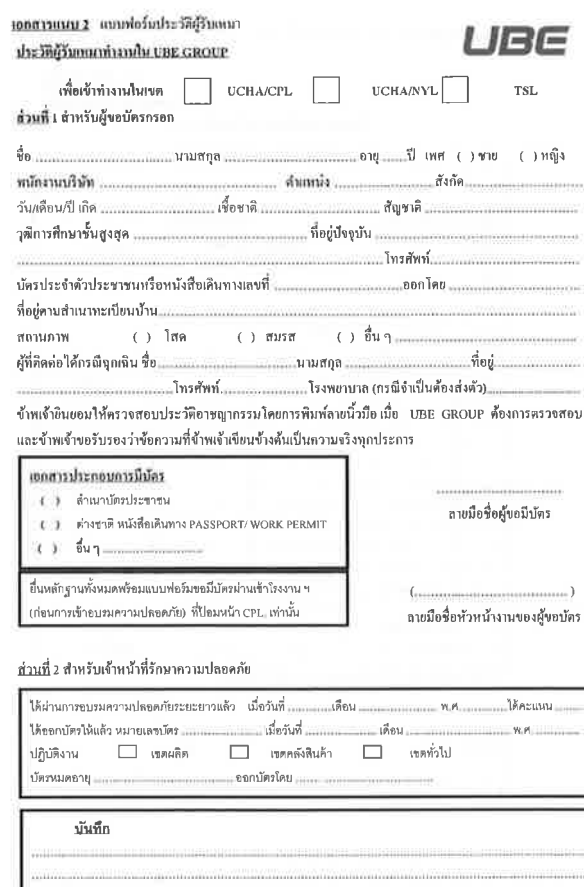 เอกสารแนบ 2 แบบฟอร์มประวัติผู้รับเหมา
UBE
ประวัติผู้รับเหมาทำงานใน UBE GROUP
เพื่อเข้าทำงานในเขต UCHA/CPL UCHA/NYL TSL
ส่วนที่ 1 สำหรับผู้ขอบัตรกรอก
ชื่อ ........ นามสกุล ........ อายุ ........ ปี เพศ ( ) ชาย ( ) หญิง
พนักงานบริษัท ........ ตำแหน่ง ........ สังกัด ........
วัน/เดือน/ปี เกิด ........ เชื้อชาติ ........ สัญชาติ ........
วุฒิการศึกษาชั้นสูงสุด ........ ที่อยู่ปัจจุบัน ........
........ โทรศัพท์ ........
บัตรประจำตัวประชาชนหรือหนังสือเดินทางเลขที่ ........ ออกโดย ........
ที่อยู่ตามสำเนาทะเบียนบ้าน ........
สถานภาพ ( ) โสด ( ) สมรส ( ) อื่น ๆ ........
ผู้ที่ติดต่อได้กรณีฉุกเฉิน ชื่อ ........ นามสกุล ........ ที่อยู่ ........
........ โทรศัพท์ ........ โรงพยาบาล (กรณีจำเป็นต้องส่งตัว) ........
ข้าพเจ้ายินยอมให้ตรวจสอบประวัติอาชญากรรมโดยการพิมพ์ลายนิ้วมือ เมื่อ UBE GROUP ต้องการตรวจสอบ
และข้าพเจ้าขอรับรองว่าข้อความที่ข้าพเจ้าเขียนข้างต้นเป็นความจริงทุกประการ
เอกสารประกอบการมีบัตร
( ) สำเนาบัตรประชาชน
( ) ต่างชาติ หนังสือเดินทาง PASSPORT/ WORK PERMIT
( ) อื่น ๆ ........
........
ลายมือชื่อผู้ขอมีบัตร
ยื่นหลักฐานทั้งหมดพร้อมแบบฟอร์มขอมีบัตรผ่านเข้าโรงงาน ฯ
(ก่อนการเข้าอบรมความปลอดภัย) ที่ป้อมหน้า CPL เท่านั้น
(........)
ลายมือชื่อหัวหน้างานของผู้ขอบัตร
ส่วนที่ 2 สำหรับเจ้าหน้าที่รักษาความปลอดภัย
ได้ผ่านการอบรมความปลอดภัยระยะยาวแล้ว เมื่อวันที่ ........ เดือน ........ พ.ศ. ........ ได้คะแนน ........
ได้ออกบัตรให้แล้ว หมายเลขบัตร ........ เมื่อวันที่ ........ เดือน ........ พ.ศ. ........
ปฏิบัติงาน เขตผลิต เขตคลังสินค้า เขตทั่วไป
บัตรหมดอายุ ........ ออกบัตรโดย ........
บันทึก